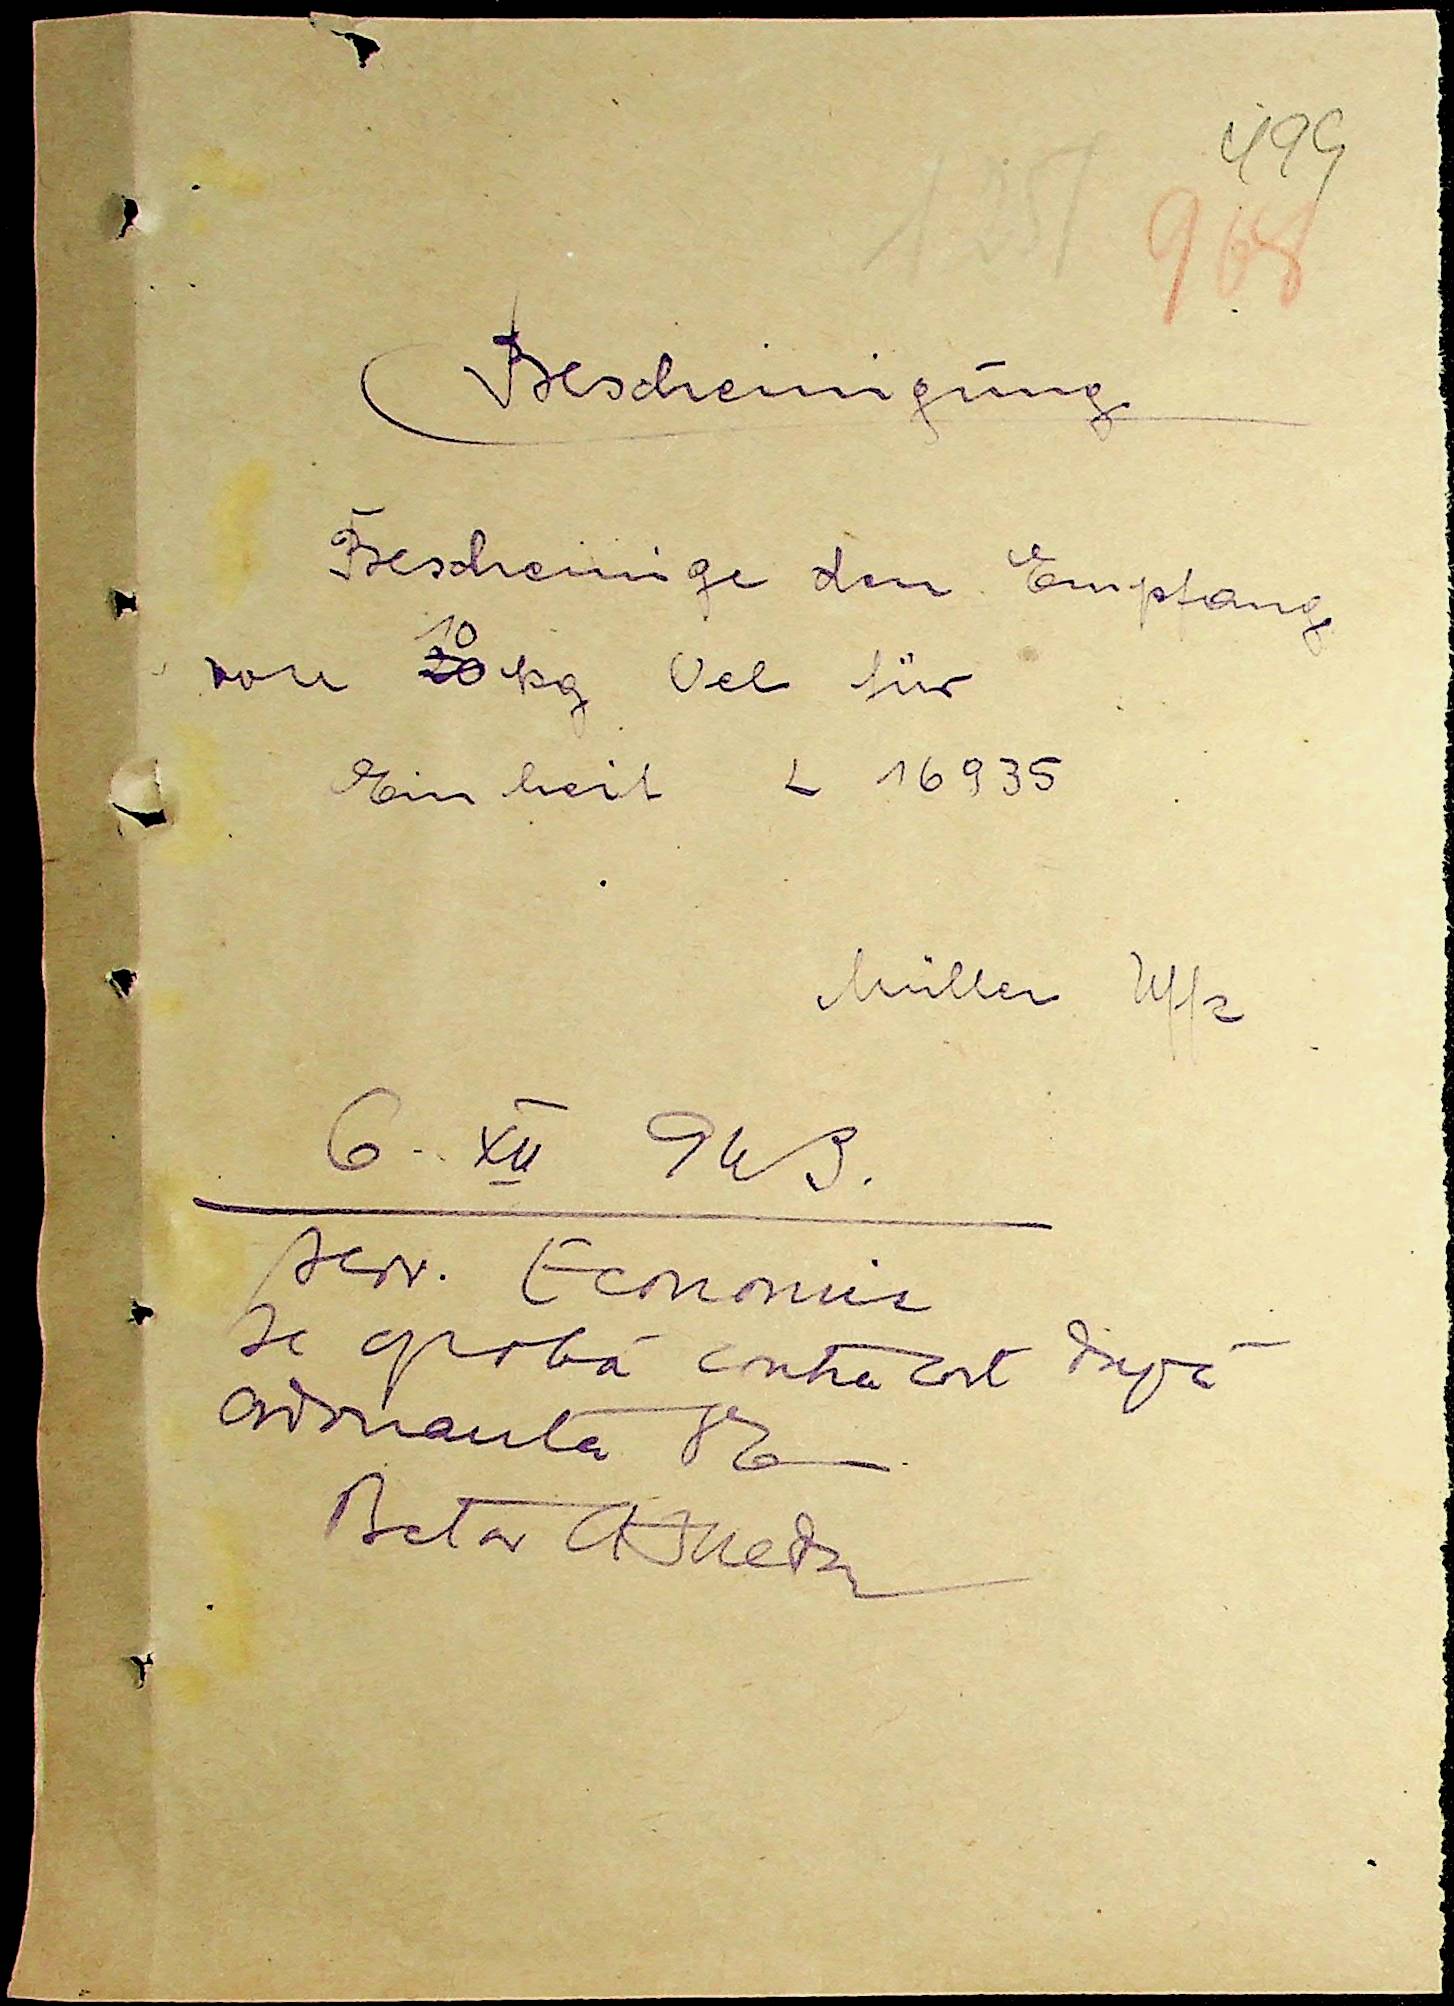 499
125
968
Bescheinigung
Bescheinige den Empfang
von 10 kg Oel für
Einheit L 16935
Müller Uffz
6. XII 943.
Serv. Economic
Se aprobă contra cost după
ordonanta